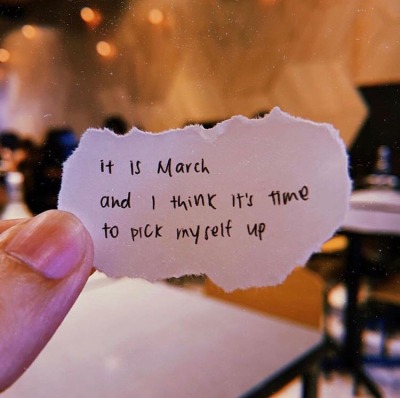 it is March
and I think it's time
to pick myself up